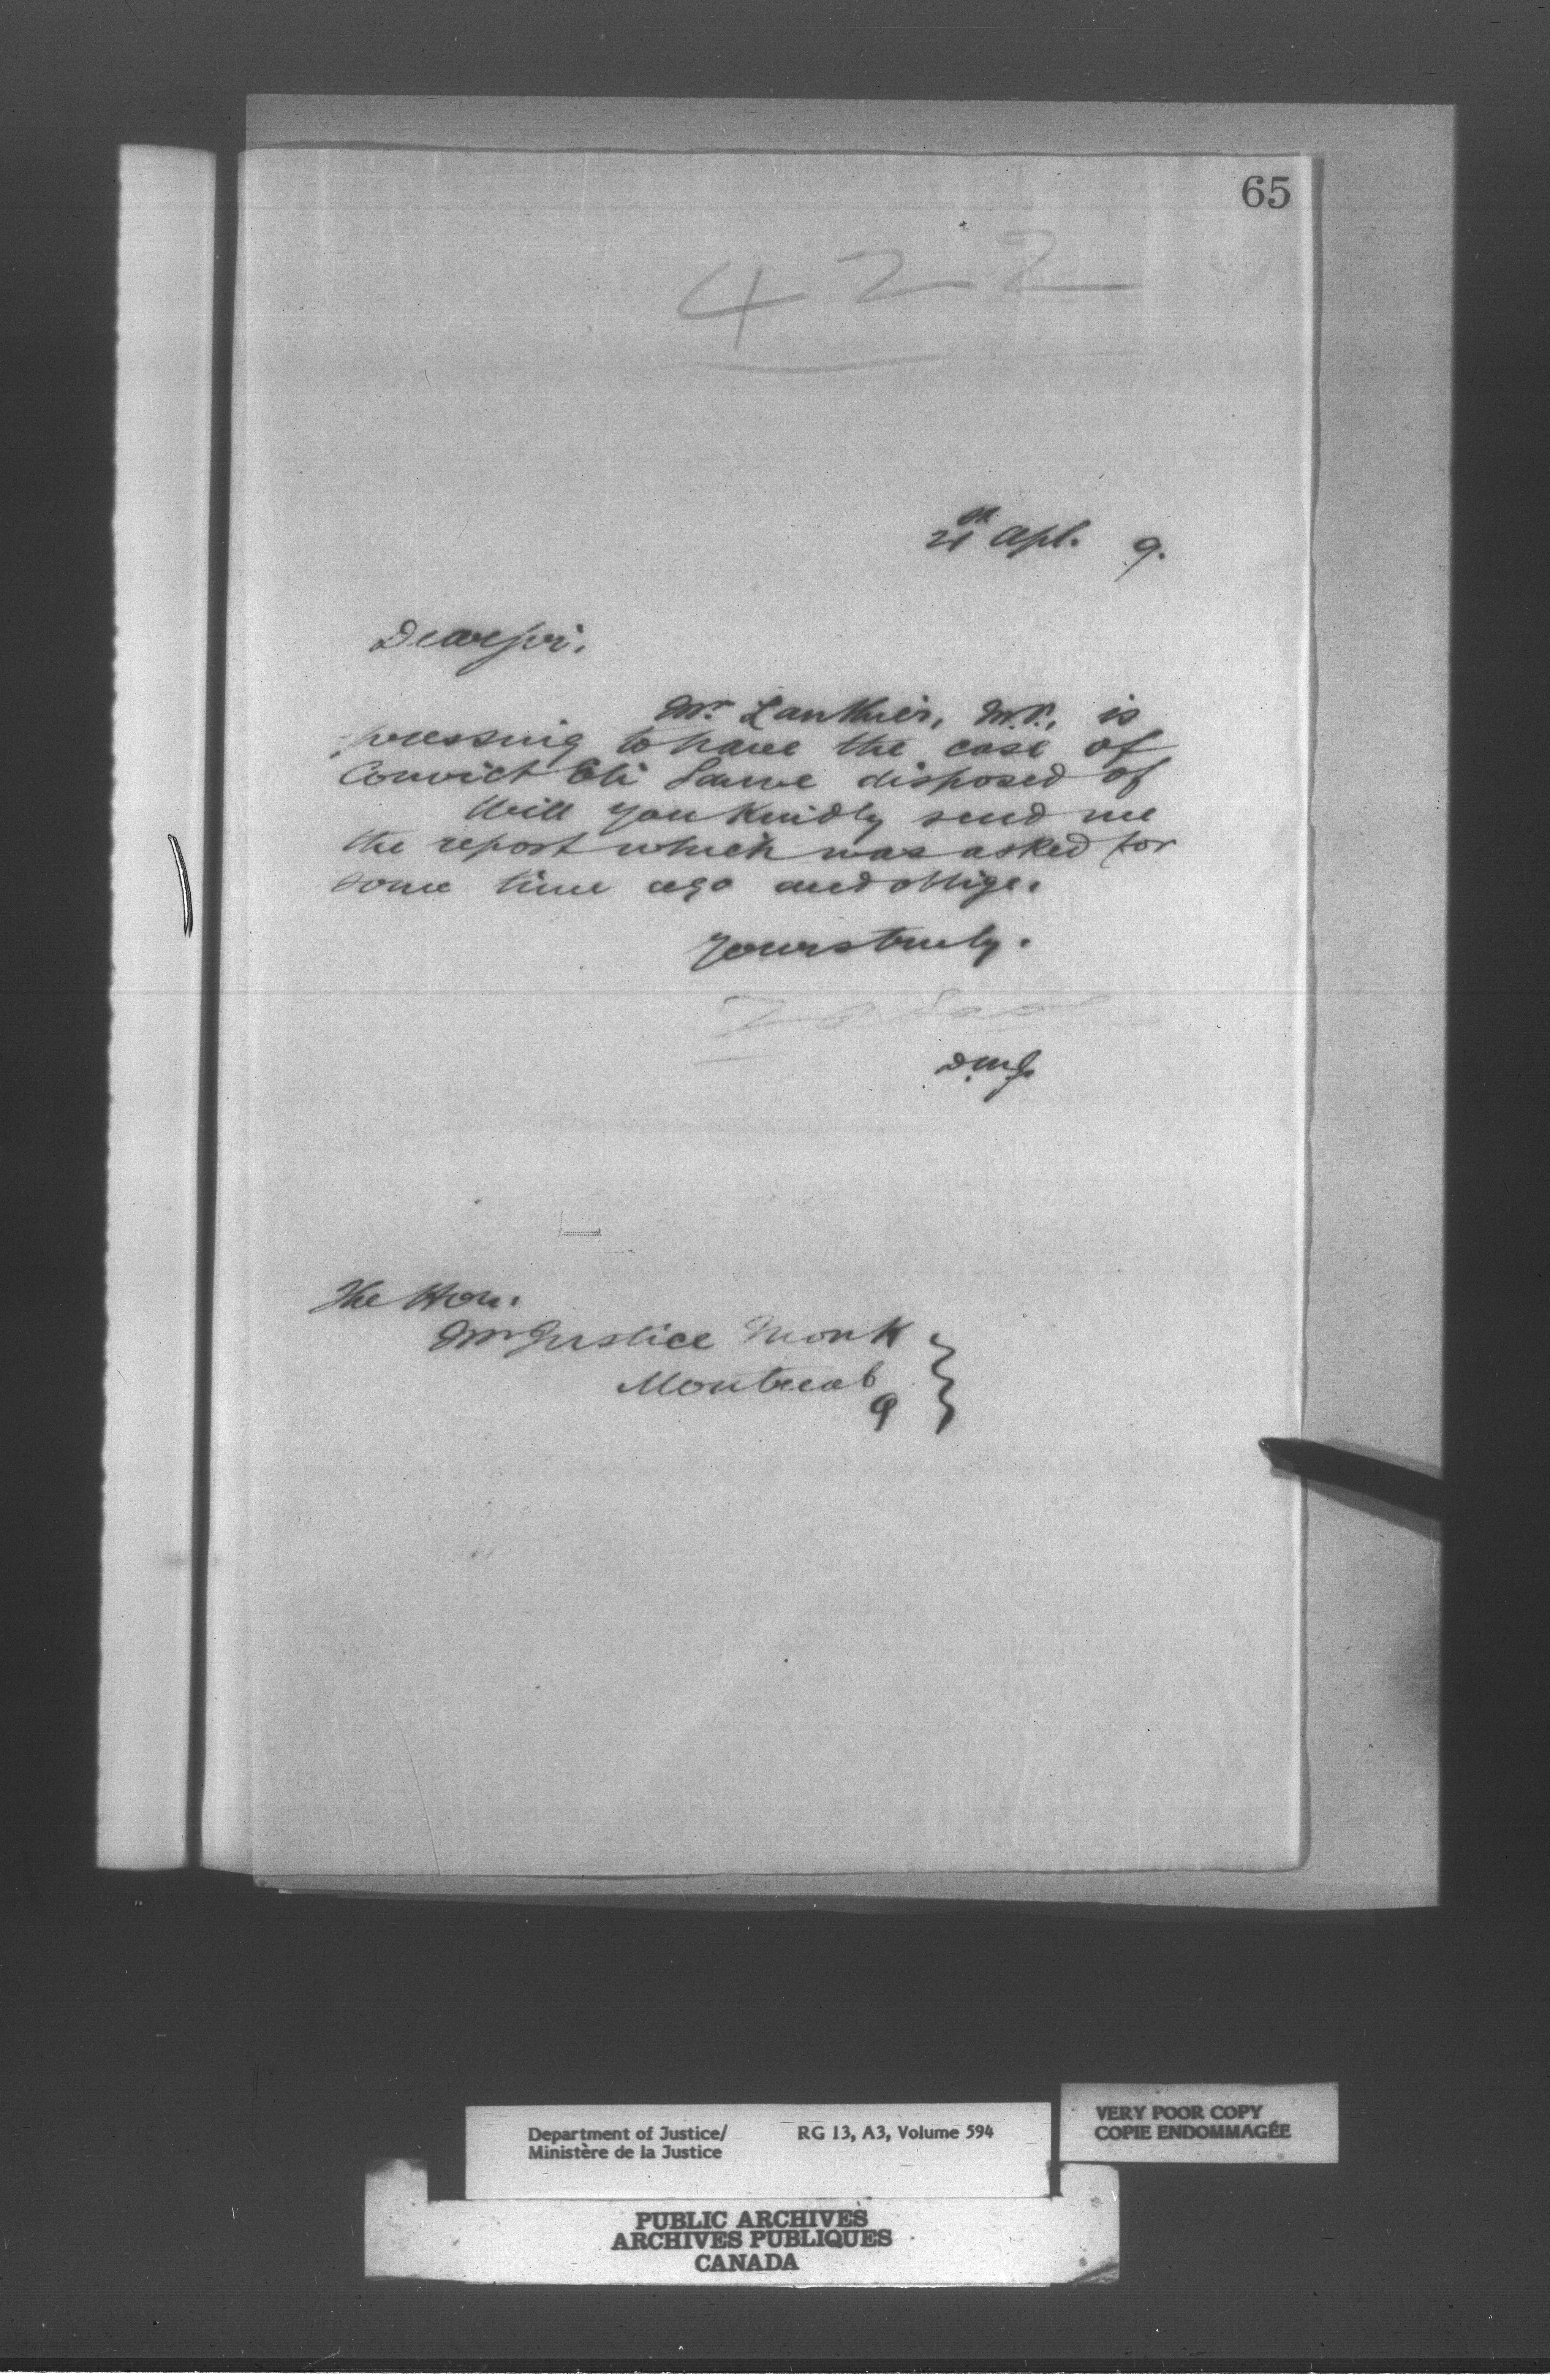 65
422
21st Apl. 9.
Dear Sir,
Mr. Lanthier, M.P., is
pressing to have the case of
Convict Eli Sauve disposed of
Will you kindly send me
the report which was asked for
some time ago and oblige.
Yours truly.
D.M.J.
The Hon.
Mr Justice Monk
Montreal
Q
Department of Justice/
Ministère de la Justice
RG 13, A3, Volume 594
VERY POOR COPY
COPIE ENDOMMAGÉE
PUBLIC ARCHIVES
ARCHIVES PUBLIQUES
CANADA